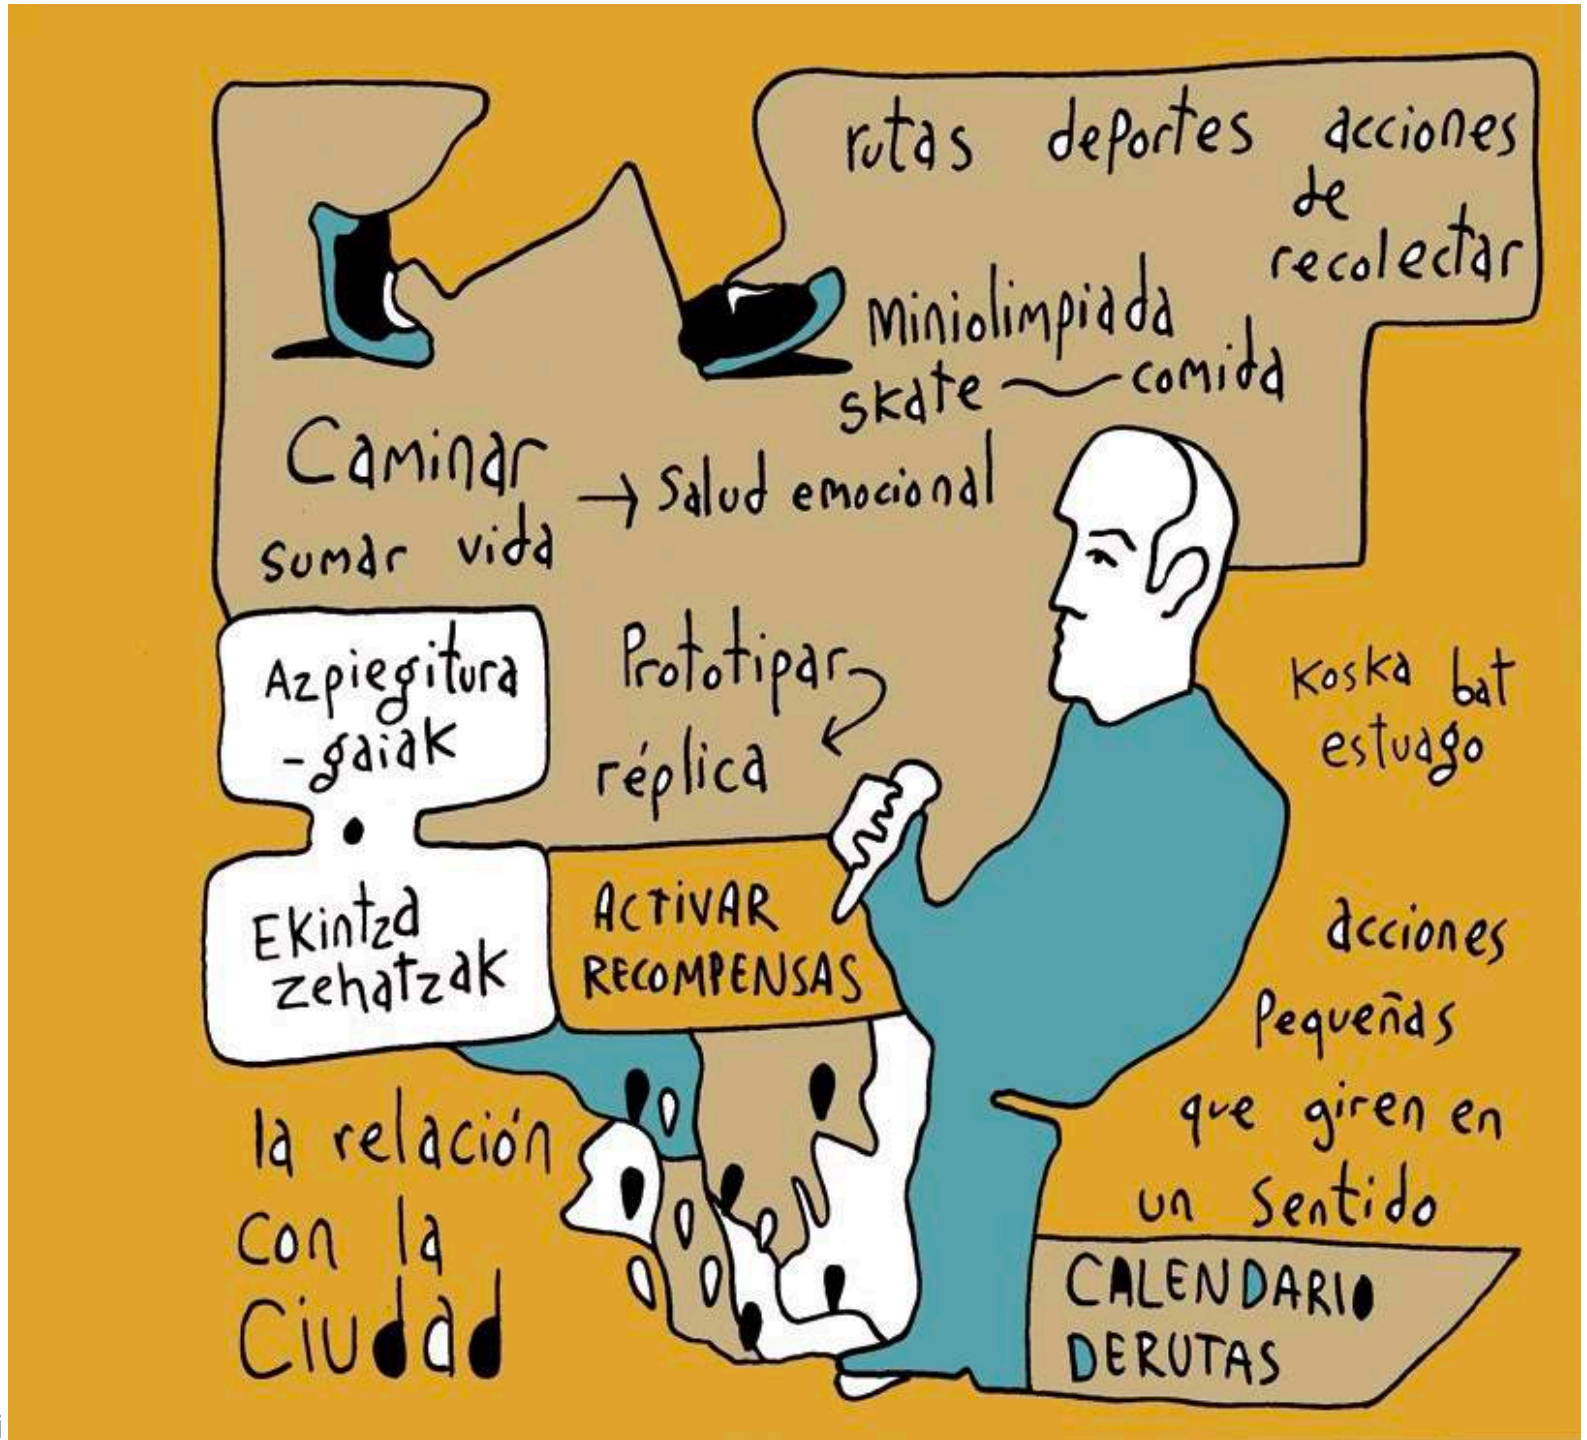 rutas deportes acciones
de
recolectar
Miniolimpiada
skate comida
Caminar
→ Salud emocional
sumar vida
Azpiegitura
-gaiak
Prototipar
réplica
Koska bat
estuago
Ekintza
zehatzak
ACTIVAR
RECOMPENSAS
acciones
Pequeñas
que giren en
un sentido
la relación
con la
Ciudad
CALENDARIO
DERUTAS